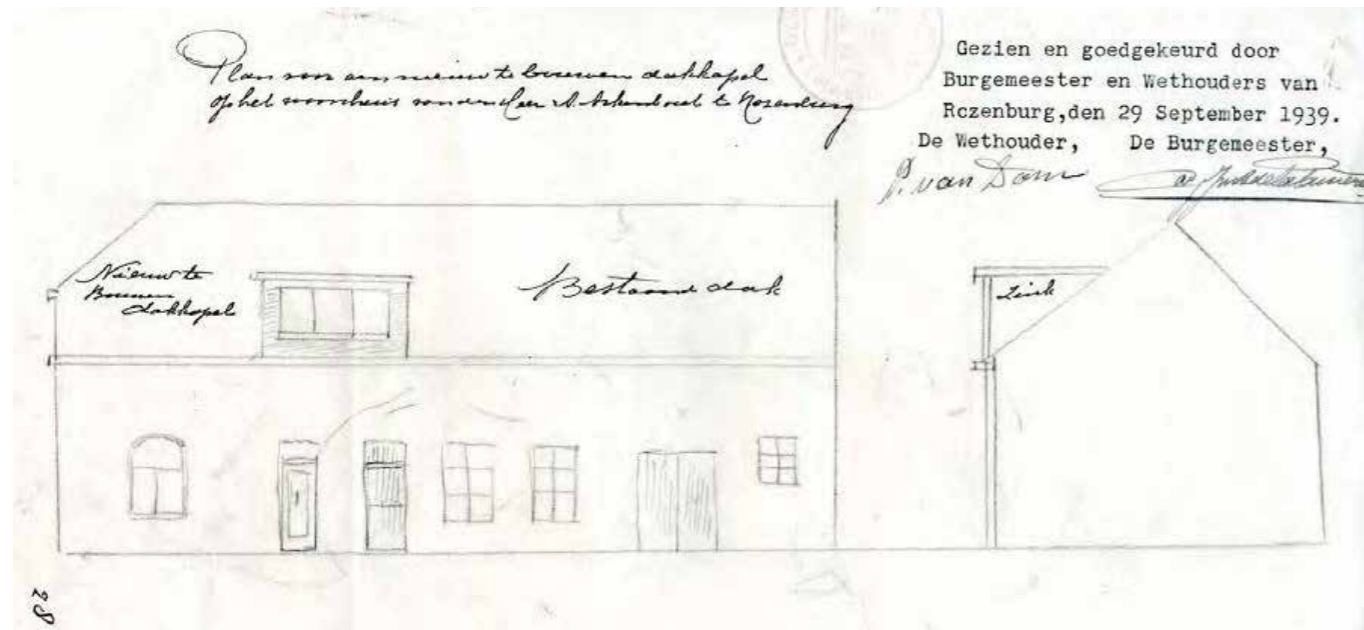 Plan van een nieuw te bouwen dakkapel
op het woonhuis van den Heer A. te Rozenburg
Gezien en goedgekeurd door
Burgemeester en Wethouders van
Rczenburg,den 29 September 1939.
De Wethouder, De Burgemeester,
P. van Dam
Nieuw te
Bouwen
dakkapel
Bestaand dak
Zink
28